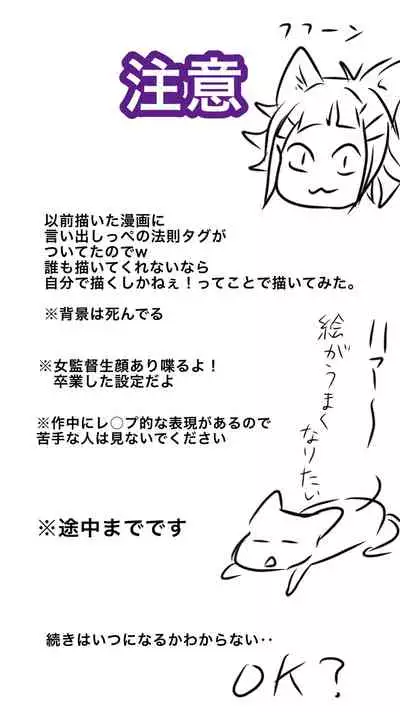 フフーン
注意
以前描いた漫画に
言い出しっぺの法則タグが
ついてたのでw
誰も描いてくれないなら
自分で描くしかねぇ！ってことで描いてみた。
※背景は死んでる
※女監督生顔あり喋るよ！
卒業した設定だよ
※作中にレ○プ的な表現があるので
苦手な人は見ないでください
ハァー〜
絵がうまく
なりたい
※途中までです
続きはいつになるかわからない‥
OK?